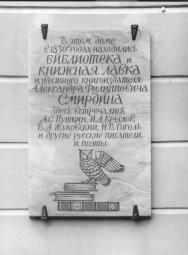 В этом доме
с 1830х годах находились
БИБЛИОТЕКА и
КНИЖНАЯ ЛАВКА
известного книгоиздателя
Александра Филипповича
Смирдина
Здесь встречались
А.С. Пушкин, И.А. Крылов,
В.А. Жуковский, Н.В. Гоголь
и другие русские писатели
и поэты